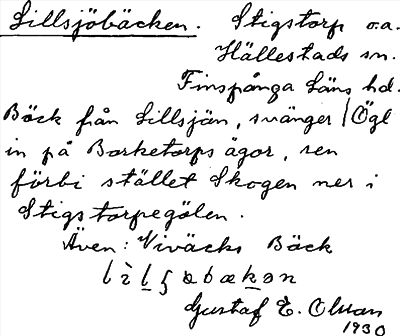 Lillsjöbäcken. Stigstorp o.a.
Hällestads sn.
Finspånga Läns hd.
Bäck från Lillsjön, svänger / Ögl
in på Borketorps ägor, sen
förbi stället Skogen ner i
Stigstorpegölen.
Även: Viväcks Bäck
Gustaf E. Olsson
1930